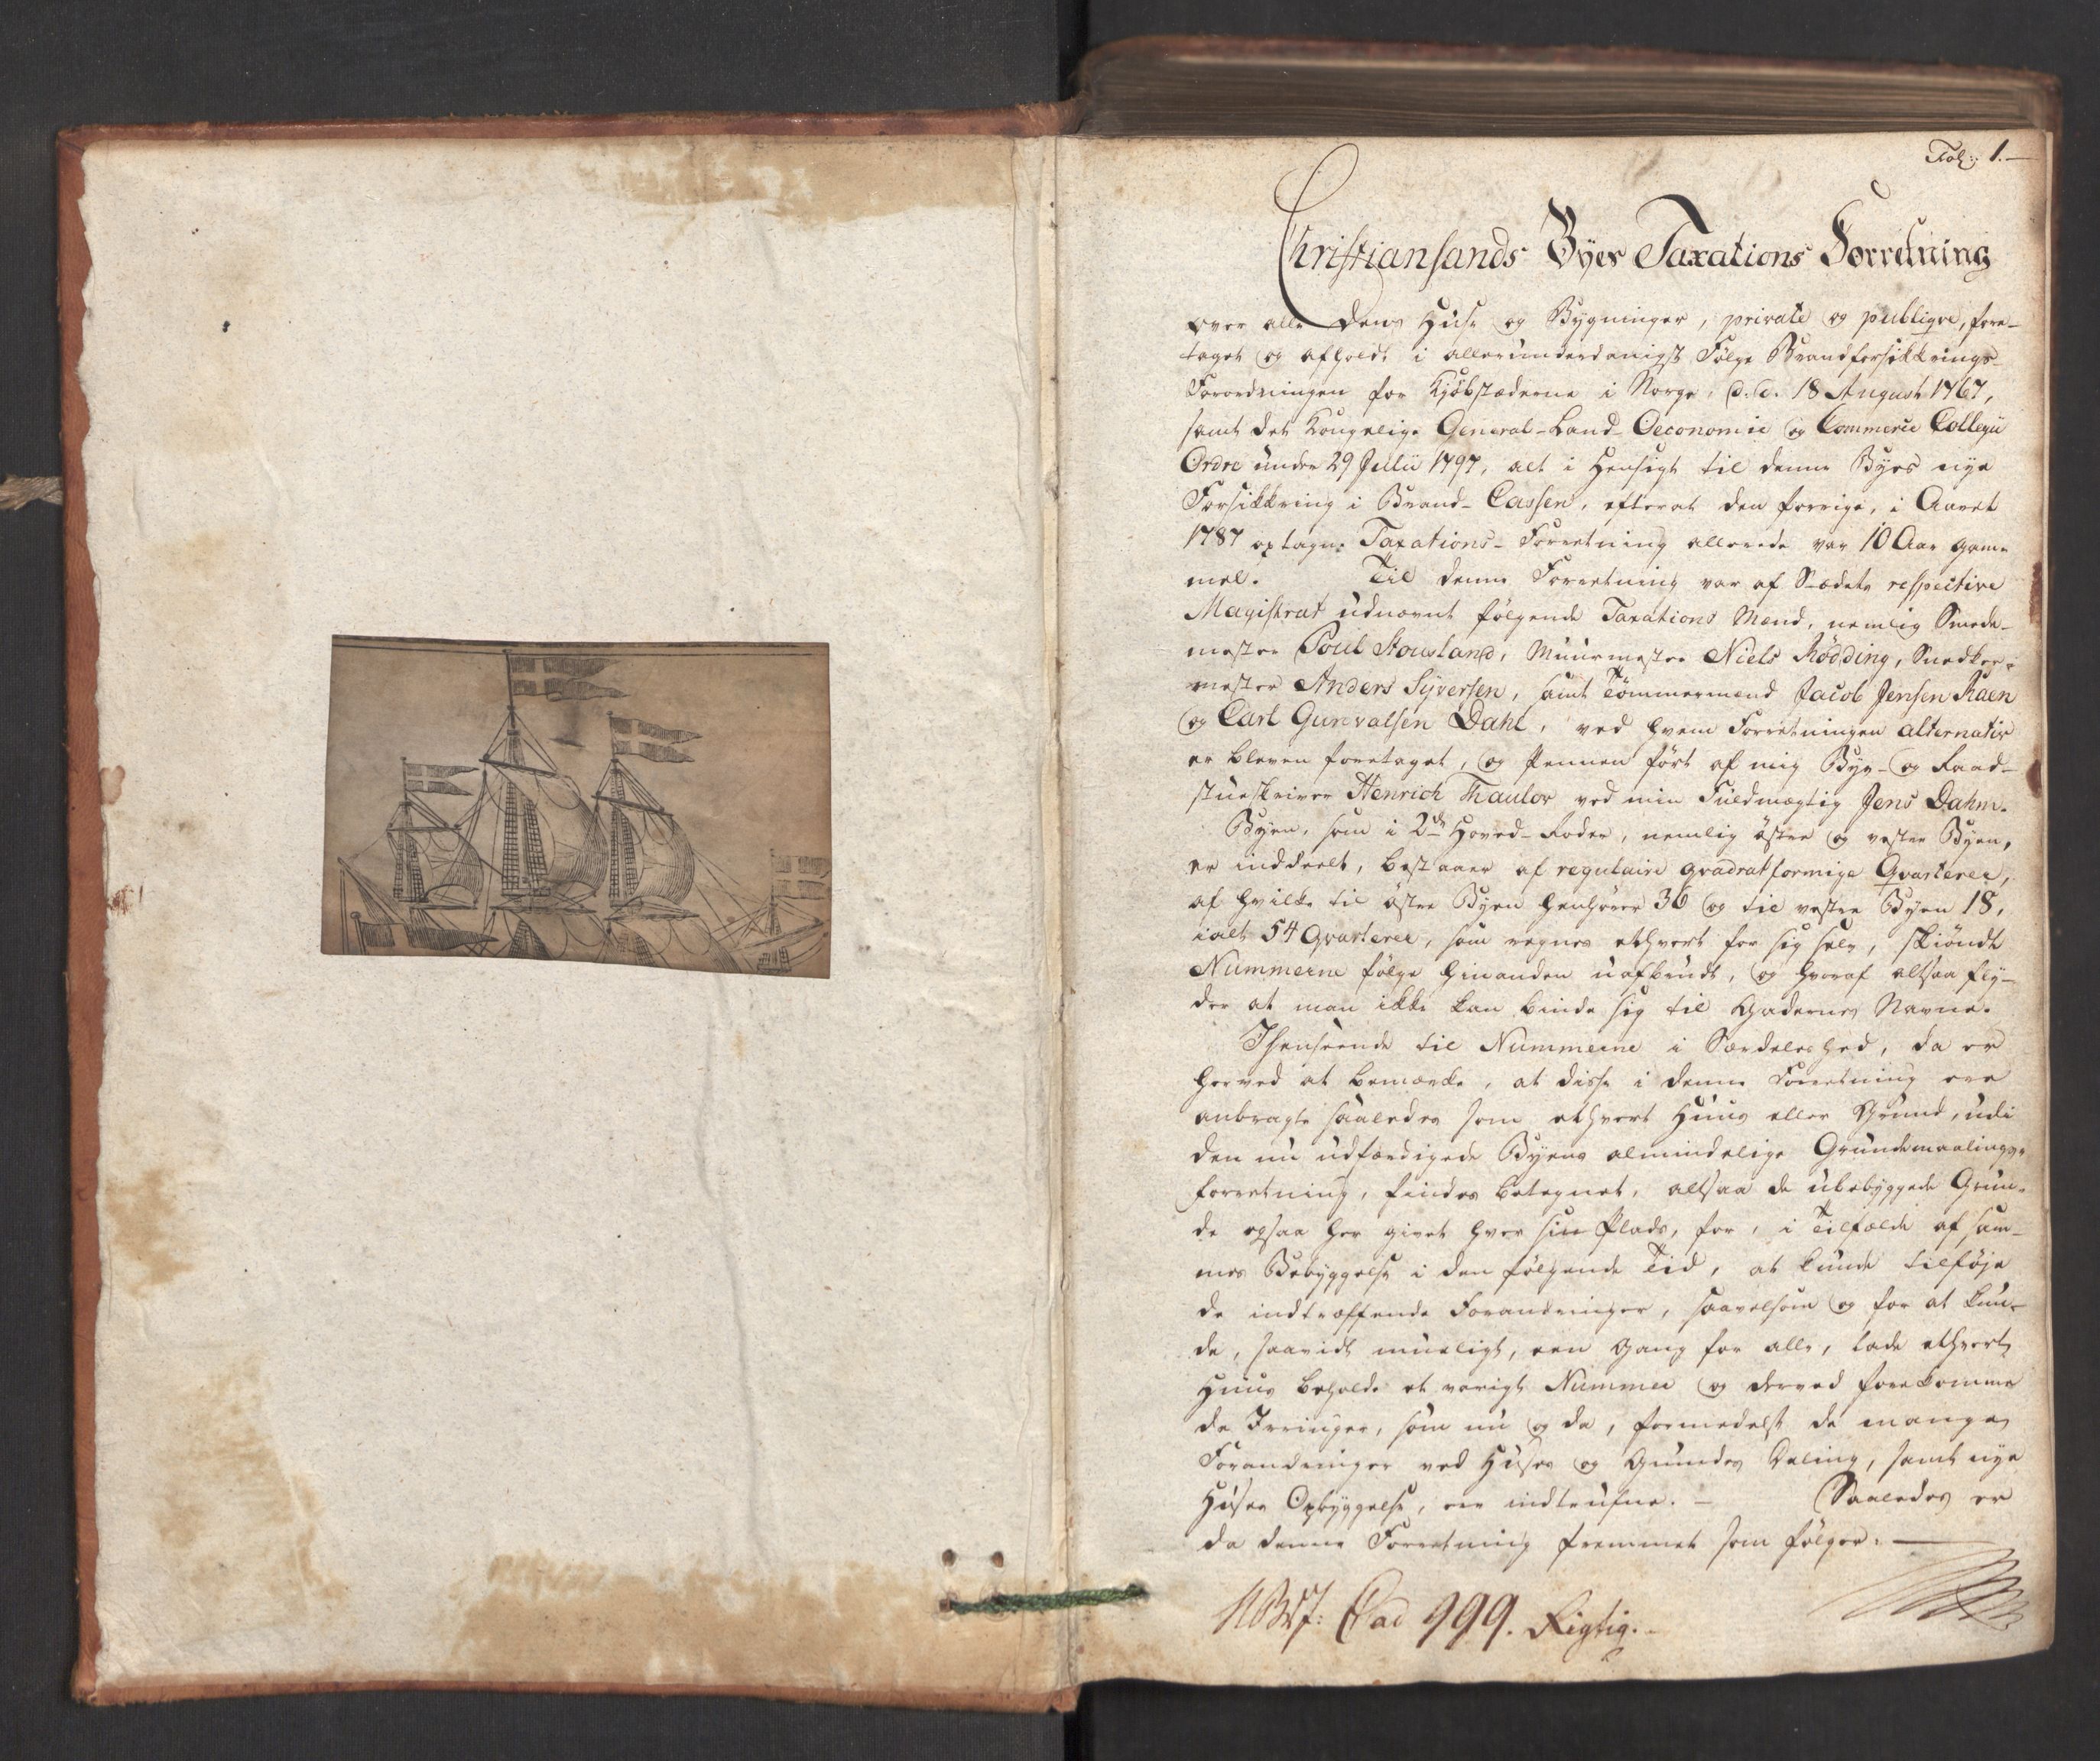 Fol: 1.
Christiansands Byes Taxations Forretning
over alle dens Huse og Bygninger, private og publiqve, fore-
taget og afholdt i allerunderdanigst Følge Brandforsikkrings-
Forordningen for Kjøbstæderne i Norge, d.d. 18 August 1767,
samt det Kongelige General-Land-Oeconomie og Commerce Collegii
Ordre under 29 Julii 1797, alt i Hensigt til denne Byes nye
Forsikkring i Brand-Cassen, efterat den forrige, i Aaret
1787 optagne Taxations-Forretning allerede var 10 Aar gam-
mel. Til denne Forretning var af Stædets respective
Magistrat udnævnt følgende Taxations Mænd, nemlig Smede-
mester Poul Stousland, Muurmester Niels Rödding, Snedker-
mester Anders Syversen, samt Tømmermænd Jacob Jensen Raen
og Carl Gunvalsen Dahl, ved hvem Forretningen alternativ
er bleven foretaget, og Pennen ført af mig Bye- og Raad-
stueskriver Henrich Thaulow ved min Fuldmægtig Jens Dahm.
Byen, som i 2de Hoved-Roder, nemlig østre og vestre Byen,
er inddeelt, bestaaer af regulaire qvadratformige Qvarterer,
af hvilke til østre Byen henhører 36 og til vestre Byen 18,
ialt 54 Qvarterer, som regnes ethvert for sig selv, skiøndt
Nummerne følge hinanden uafbrudt, og hvoraf altsaa fly-
der at man ikke kan binde sig til Gadernes Navne.
Ihenseende til Nummerne i Særdeleshed, da er
herved at bemærke, at disse i denne Forretning ere
anbragte saaledes som ethvert Huus eller Grund, udi
den nu udfærdigede Byens almindelige Grundemaalings-
forretning, findes betegnet, altsaa de ubebyggede Grun-
de ogsaa her givet hver sin Plads, for, i Tilfælde af sam-
mes Bebyggelse i den følgende Tid, at kunde tilføje
de indtræffende Forandringer, saavelsom og for at kun-
de, saavidt mueligt, een Gang for alle, lade ethvert
Huus beholde et varigt Nummer og derved forekomme
de Irringer, som nu og da, formedelst de mange
Forandringer ved Huses og Grundes Deling, samt nye
Huses Opbyggelse, ere indtrufne. - Saaledes er
da denne Forretning fremmet som følger:
999. Rigtig.